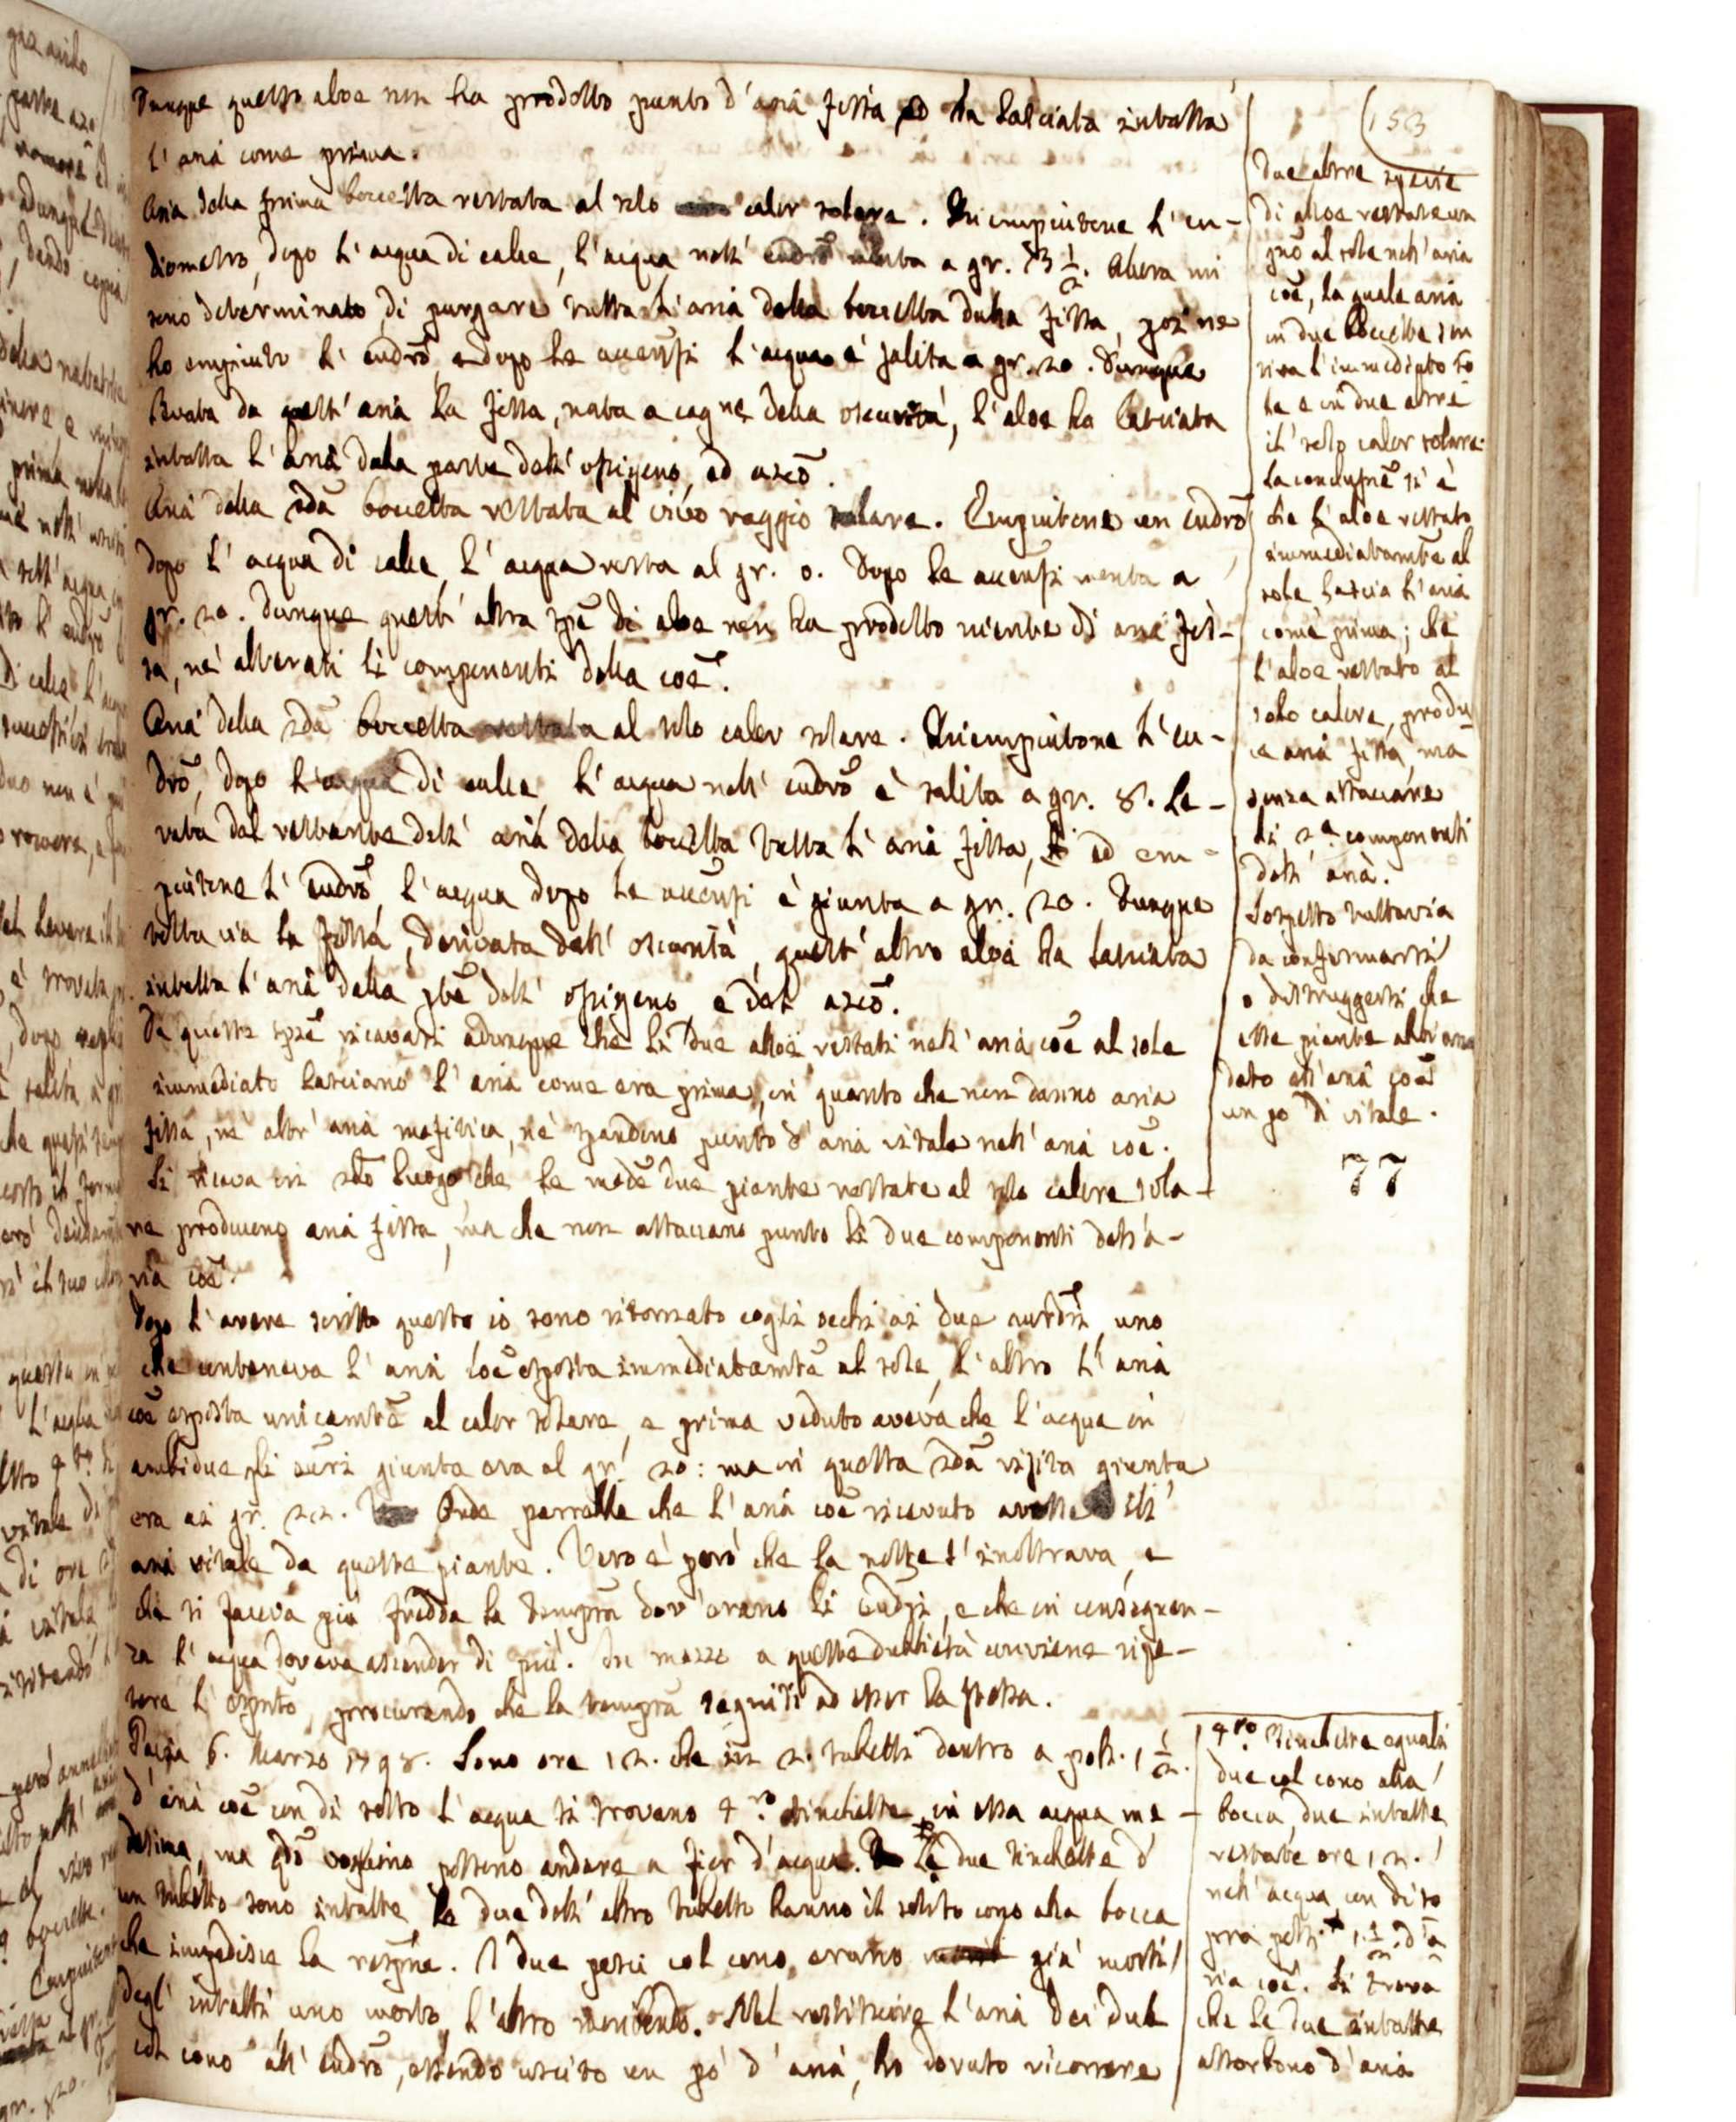 Dunque questo aloe non ha prodotto punto d'aria fissa ed ha lasciata intatta
l'aria come prima.
Aria della prima boccetta restata al solo calor solare. Riempiutone l'eu-
diometro, dopo l'acqua di calce, l'acqua nell' eudrō monta a gr. 3 1/2. Allora mi
sono determinato di purgare tutta l'aria della boccetta dalla fissa, poi ne
ho empiuto l'eudrō, e dopo le accensi l'acqua è salita a gr. 20. Dunque
levata da quest'aria la fissa, nata a cagne della oscurità, l'aloe ha lasciata
intatta l'aria dalla parte dell' ossigeno, ed azcō.
Aria della 2da boccetta restata al vivo raggio solare. Empiutone un eudrō
dopo l'acqua di calce, l'acqua resta al gr. 0. Dopo le accensi monta a
gr. 20. Dunque quest'altra spē di aloe non ha prodotto niente di aria fis-
sa, nè alterati li componenti della coē.
Aria della 2da boccetta restata al solo calor solare. Riempiutone l'eu-
drō, dopo l'acqua di calce, l'acqua nell' eudrō è salita a gr. 8. Le-
vata dal restante dell' aria della boccetta tutta l'aria fissa, ed em-
piutone l'eudrō, l'acqua dopo le accensi è giunta a gr. 20. Dunque
tolta via la fissa, derivata dall' oscurità, quest'altro aloe ha lasciata
intatta l'aria dalla pte dell' ossigeno e dell' azcō.
Da queste spzē ricavasi adunque che li due aloè restati nell' aria coē al sole
immediato lasciano l'aria come era prima, in quanto che non danno aria
fissa, nè altr' aria mofitica, nè spandono punto d'aria vitale nell' aria coē.
Si ricava in 2do luogo che le medē due piante restate al solo calore sola-
re producono aria fissa, ma che non attaccano punto li due componenti dell'a-
ria coē.
Dopo l'avere scritto questo io sono ritornato cogli occhi ai due eudri, uno
che conteneva l'aria coē esposta immediatamte al sole, l'altro l'aria
coē esposta unicamte al calor solare, e prima veduto aveva che l'acqua in
ambidue gli eudri giunta era al gr. 20: ma in questa 2da visita giunta
era ai gr. 22. Onde parrebbe che l'aria coē ricevuto avesse
aria vitale da queste piante. Vero è però che la notte s'inoltrava, e
che si faceva più fredda la tempra dov'erano li eudri, e che in conseguen-
za l'acqua doveva ascender di più. In mezzo a queste dubbietà conviene ripe-
tere l'espmto, procurando che la tempra seguiti ad esser la stessa.
Pavia 6. Marzo 1798. Sono ore 12. che in 2. tubetti dentro a poll. 1 1/2.
d'aria coē con di sotto l'acqua si trovano 4ro tinchette in essa acqua me-
desima, ma qdo vogliono possono andare a fior d'acqua. Le due tinchette d'
un tubetto sono intatte, le due dell' altro tubetto hanno il solito cono alla bocca
che impedisce la respne. I due pesci col cono, erano già morti
degl' intatti uno morto, l'altro moribondo. Nel restituire l'aria dei due
col cono all' eudrō, essendo uscito un pò d'aria, ho dovuto ricorrere
153
Due altre specie
di aloe restate un
gno al sole nell'aria
coē, la quale aria
in due boccette sen
tiva l'immediato so
le e in due altre
il solo calor solare.
La conclusne si è
che l'aloe restato
immediatamte al
sole lascia l'aria
come prima; che
l'aloe restato al
solo calore, produ
ce aria fissa, ma
senza attaccare
li 2e componenti
dell' aria.
Sospetto tuttavia
da confermarsi
o distruggersi che
esse piante abbian
dato all'aria coē
un po di vitale.
77
4ro Tinchette eguali
due col cono alla
bocca, due intatte
restate ore 12.
nell' acqua con di so
pra poll. 1. 1/2. d'a
ria coē. Si trova
che le due intatte
assorbono d'aria